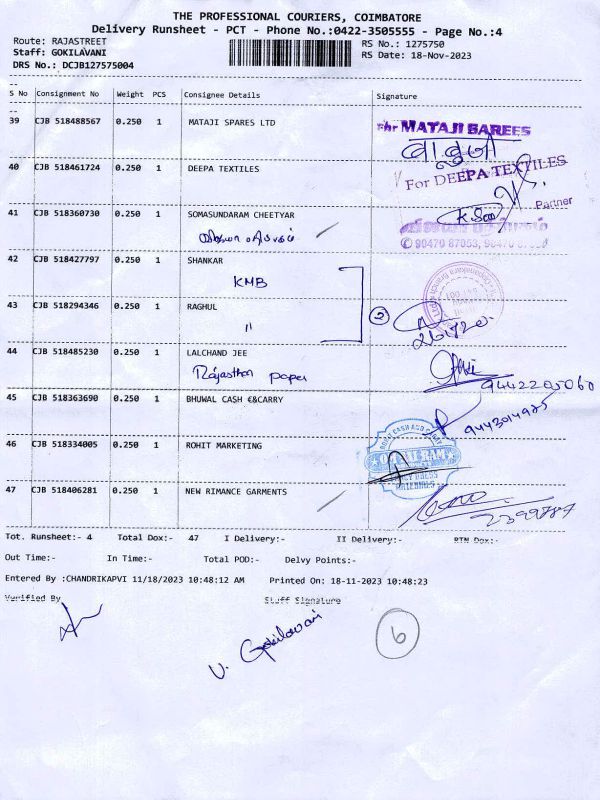 THE PROFESSIONAL COURIERS, COIMBATORE
Delivery Runsheet - PCT - Phone No.:0422-3505555 - Page No.:4
Route: RAJASTREET
RS No.: 1275750
Staff: GOKILAVANI
RS Date: 18-Nov-2023
DRS No.: DCJB127575004
S No Consignment No Weight PCS Consignee Details Signature
39 CJB 518488567 0.250 1 MATAJI SPARES LTD
For MATAJI SAREES
40 CJB 518461724 0.250 1 DEEPA TEXTILES
For DEEPA TEXTILES
Partner
41 CJB 518360730 0.250 1 SOMASUNDARAM CHEETYAR
90470 87053, 98470
42 CJB 518427797 0.250 1 SHANKAR
KMB
43 CJB 518294346 0.250 1 RAGHUL
"
2
44 CJB 518485230 0.250 1 LALCHAND JEE
Rajasthan paper
9442205060
45 CJB 518363690 0.250 1 BHUWAL CASH €&CARRY
9443014925
46 CJB 518334005 0.250 1 ROHIT MARKETING
47 CJB 518406281 0.250 1 NEW RIMANCE GARMENTS
2399787
Tot. Runsheet:- 4 Total Dox:- 47 I Delivery:- II Delivery:- RTN Dox:-
Out Time:- In Time:- Total POD:- Delvy Points:-
Entered By :CHANDRIKAPVI 11/18/2023 10:48:12 AM Printed On: 18-11-2023 10:48:23
Verified By Staff Signature
V. Gokilavani
6